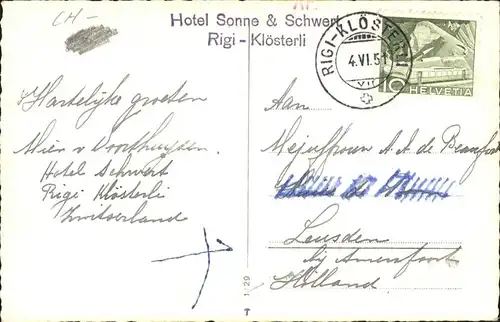 CH-
Hotel Sonne & Schwert
Rigi - Klösterli
RIGI-KLÖSTERLI
4.VI.51
10 HELVETIA
Hartelijke groeten
Hotel Schwert
Rigi Klösterli
Zwitserland
Aan
Mejuffrouw A.A. de Beaufort
Leusden
bij Amersfoort
Holland
29
T